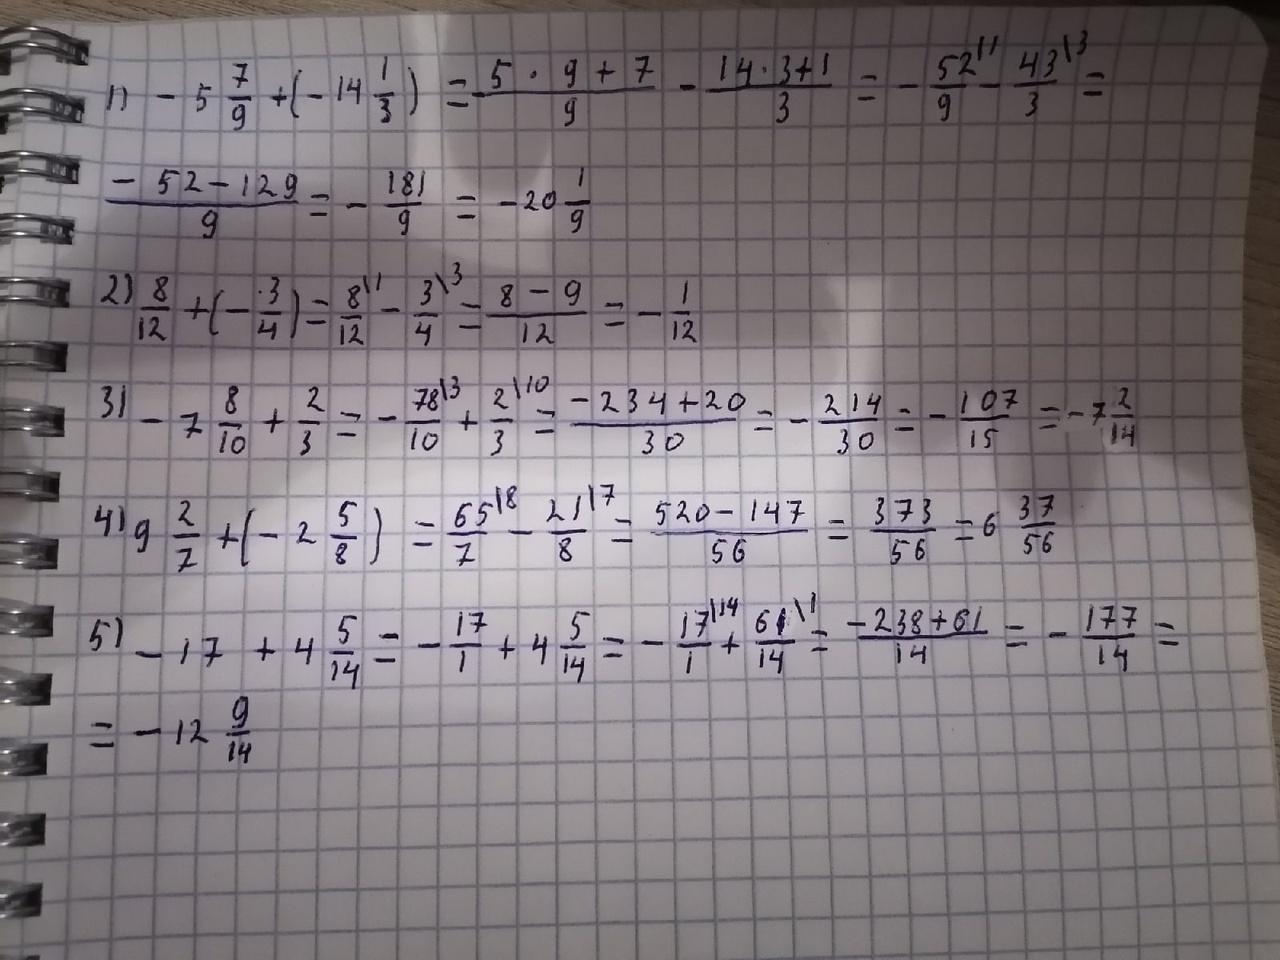 1) - 5 7/9 + (- 14 1/3) = - (5 · 9 + 7)/9 - (14 · 3 + 1)/3 = - 52/9 \1 - 43/3 \3 =
(- 52 - 129)/9 = - 181/9 = - 20 1/9
2) 8/12 + (- 3/4) = 8/12 \1 - 3/4 \3 = (8 - 9)/12 = - 1/12
3) - 7 8/10 + 2/3 = - 78/10 \3 + 2/3 \10 = (- 234 + 20)/30 = - 214/30 = - 107/15 = - 7 2/14
4) 9 2/7 + (- 2 5/8) = 65/7 \8 - 21/8 \7 = (520 - 147)/56 = 373/56 = 6 37/56
5) - 17 + 4 5/14 = - 17/1 + 4 5/14 = - 17/1 \14 + 61/14 \1 = (- 238 + 61)/14 = - 177/14 =
= - 12 9/14